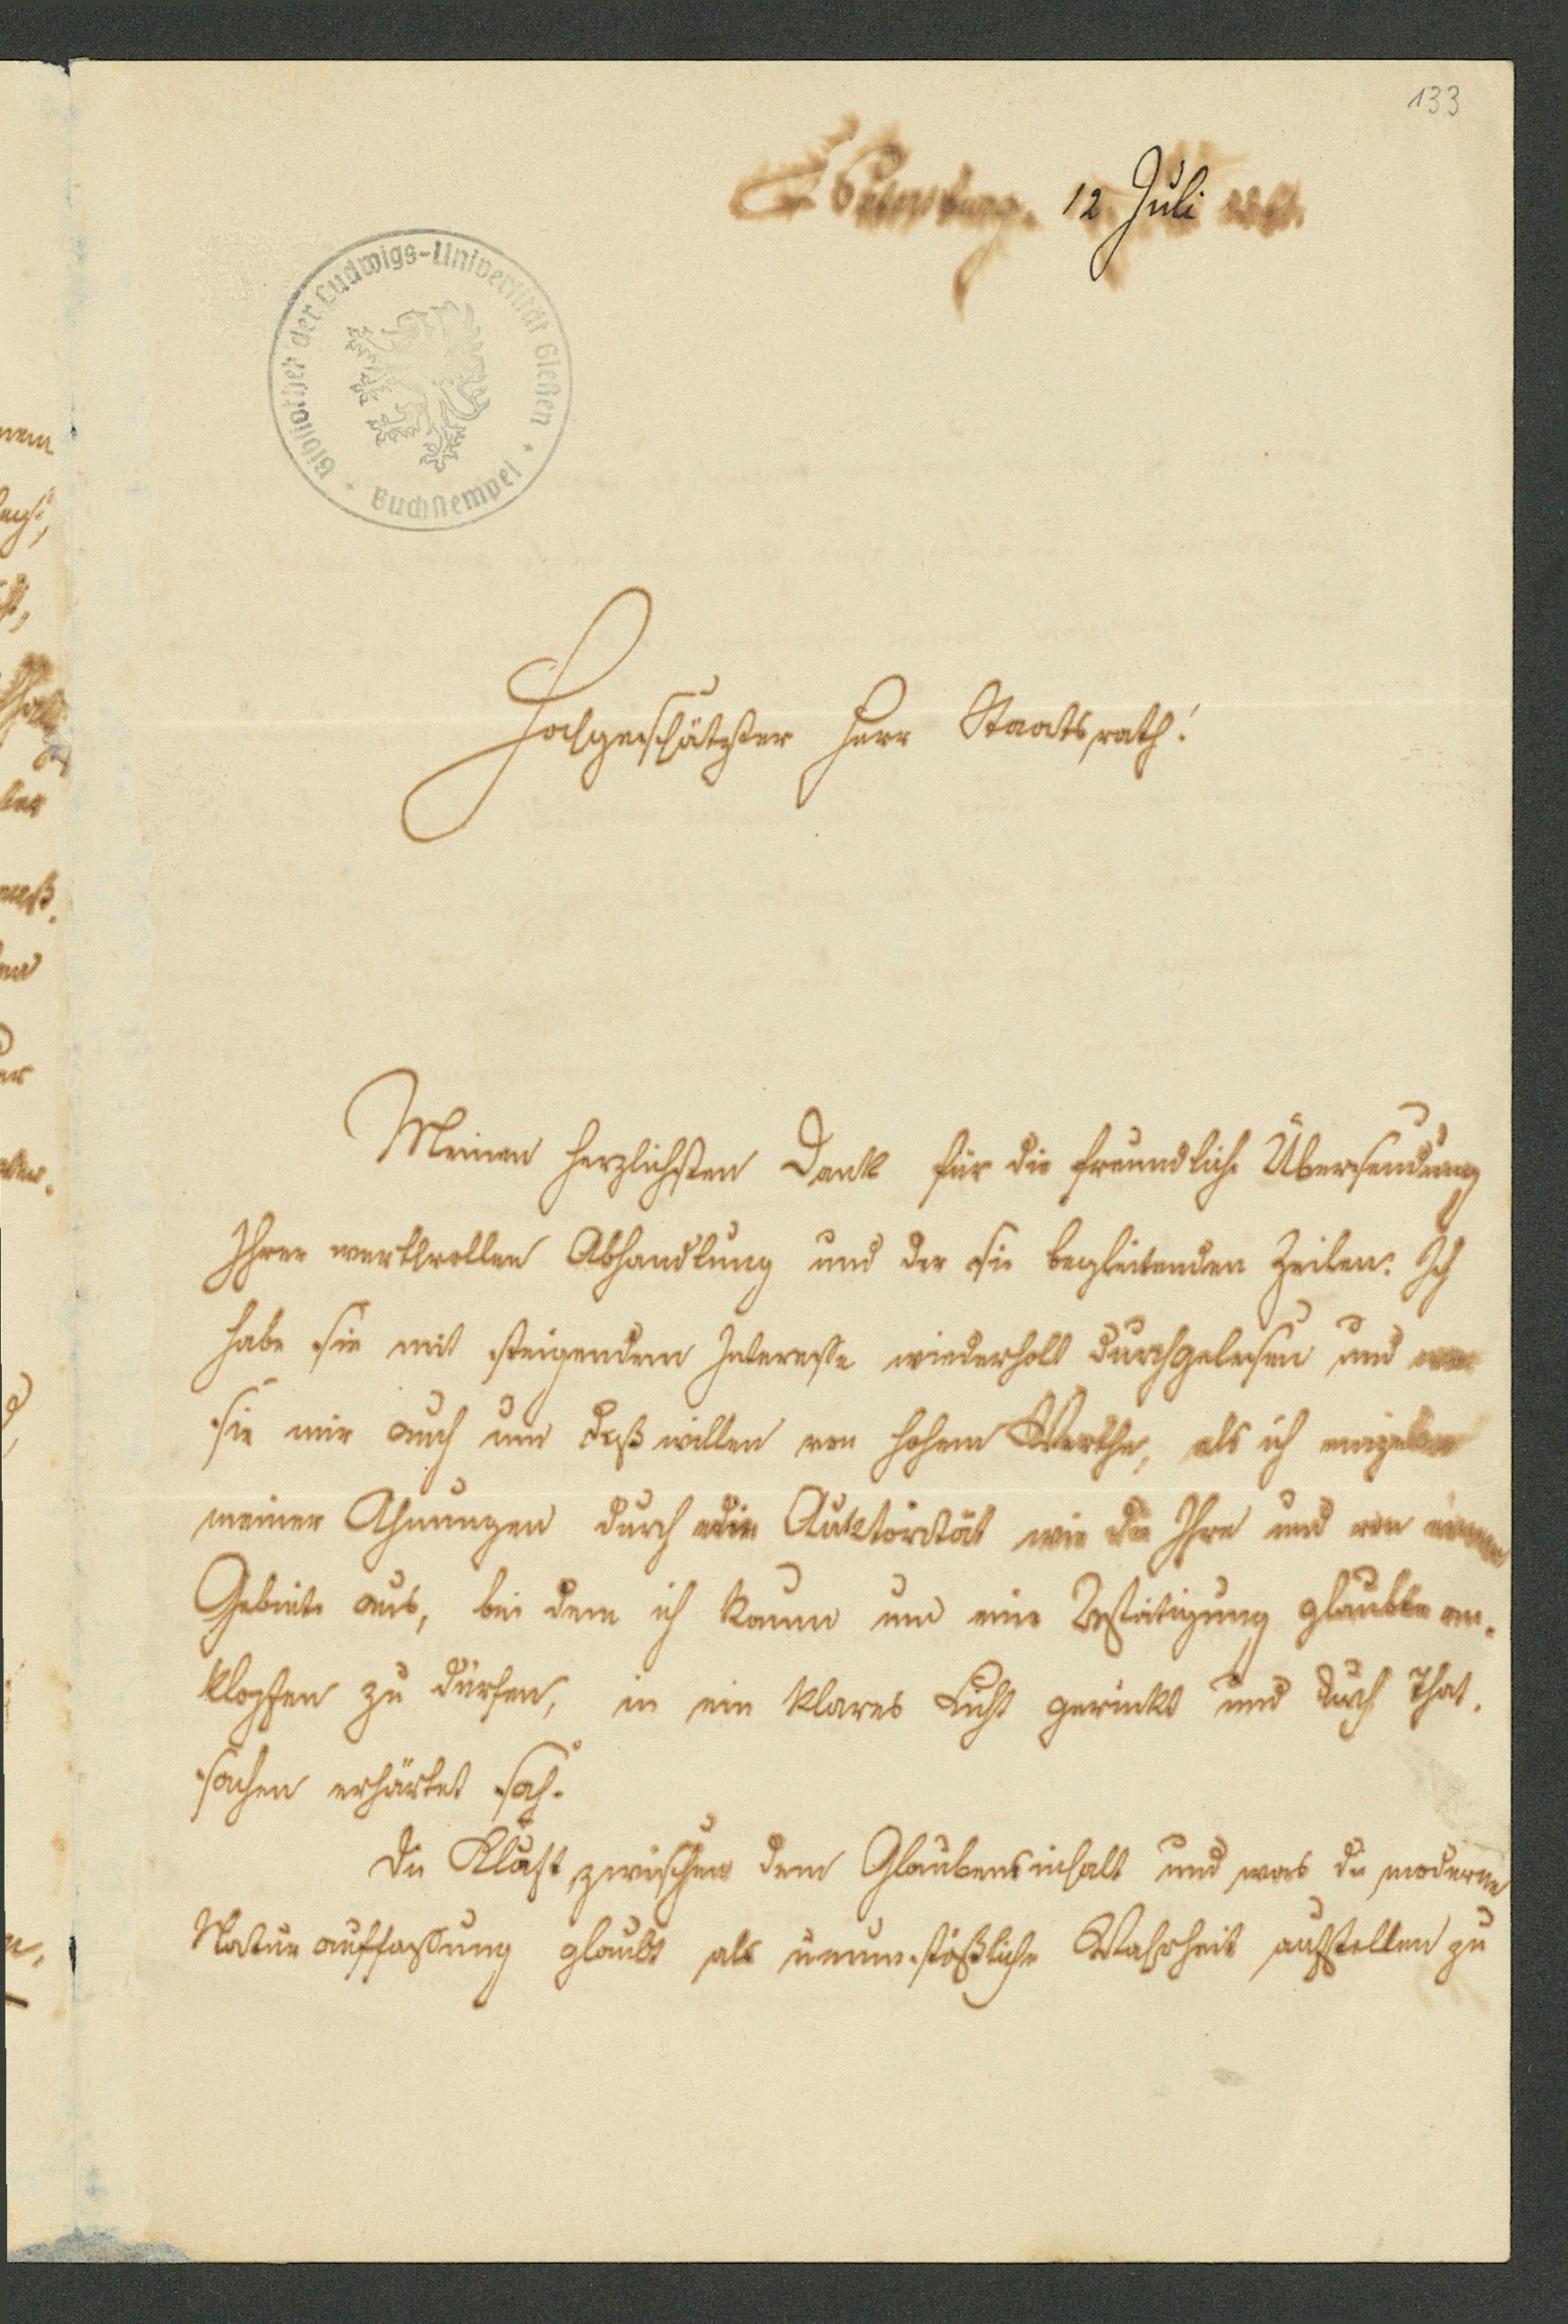 133
St Petersburg. 12. Juli
Bibliothek der Ludwigs-Universität Gießen
Buchstempel
Hochgeschätzter Herr Staatsrath!
Meinen herzlichsten Dank für die freundliche Übersendung
Ihrer werthvollen Abhandlung und der sie begleitenden Zeilen. Ich
habe sie mit steigendem Interesse wiederholt durchgelesen und war
sie mir auch um deßwillen von hohem Werthe, als ich einzelne
meiner Ahnungen durch eine Auktorität wie die Ihre und von einem
Gebiete aus, bei dem ich kaum um eine Bestätigung glaubte an-
klopfen zu dürfen, in ein klares Licht gerückt und durch That-
sachen erhärtet sah.
Die Kluft zwischen dem Glaubensinhalt und was die moderne
Naturauffassung glaubt als unumstößliche Wahrheit aufstellen zu